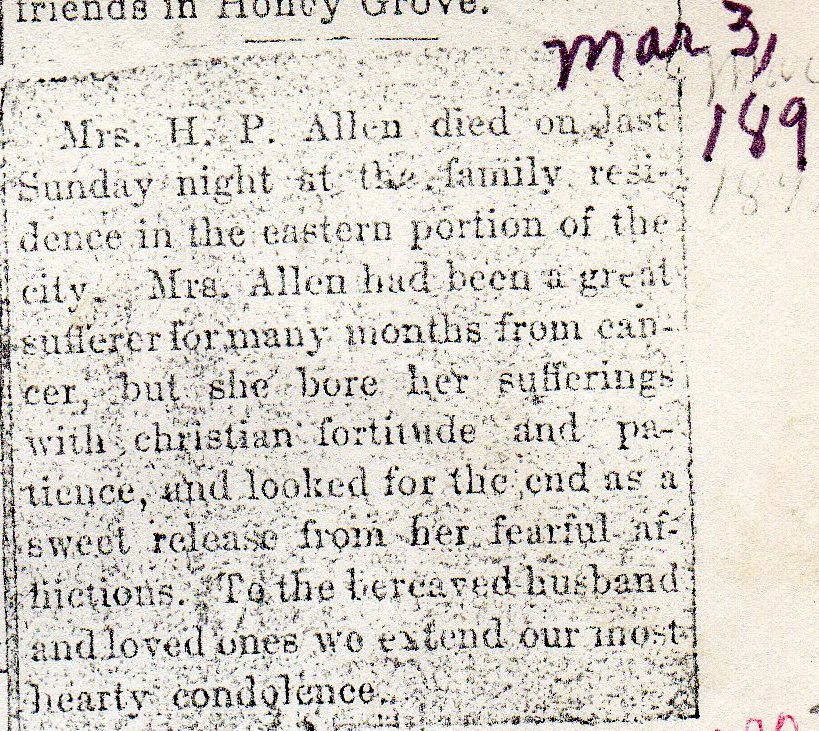 friends in Honey Grove.
Mar 3,
189
Mrs. H. P. Allen died on last
Sunday night at the family resi-
dence in the eastern portion of the
city. Mrs. Allen had been a great
sufferer for many months from can-
cer, but she bore her sufferings
with christian fortitude and pa-
tience, and looked for the end as a
sweet release from her fearful af-
flictions. To the bereaved husband
and loved ones we extend our most
hearty condolence.